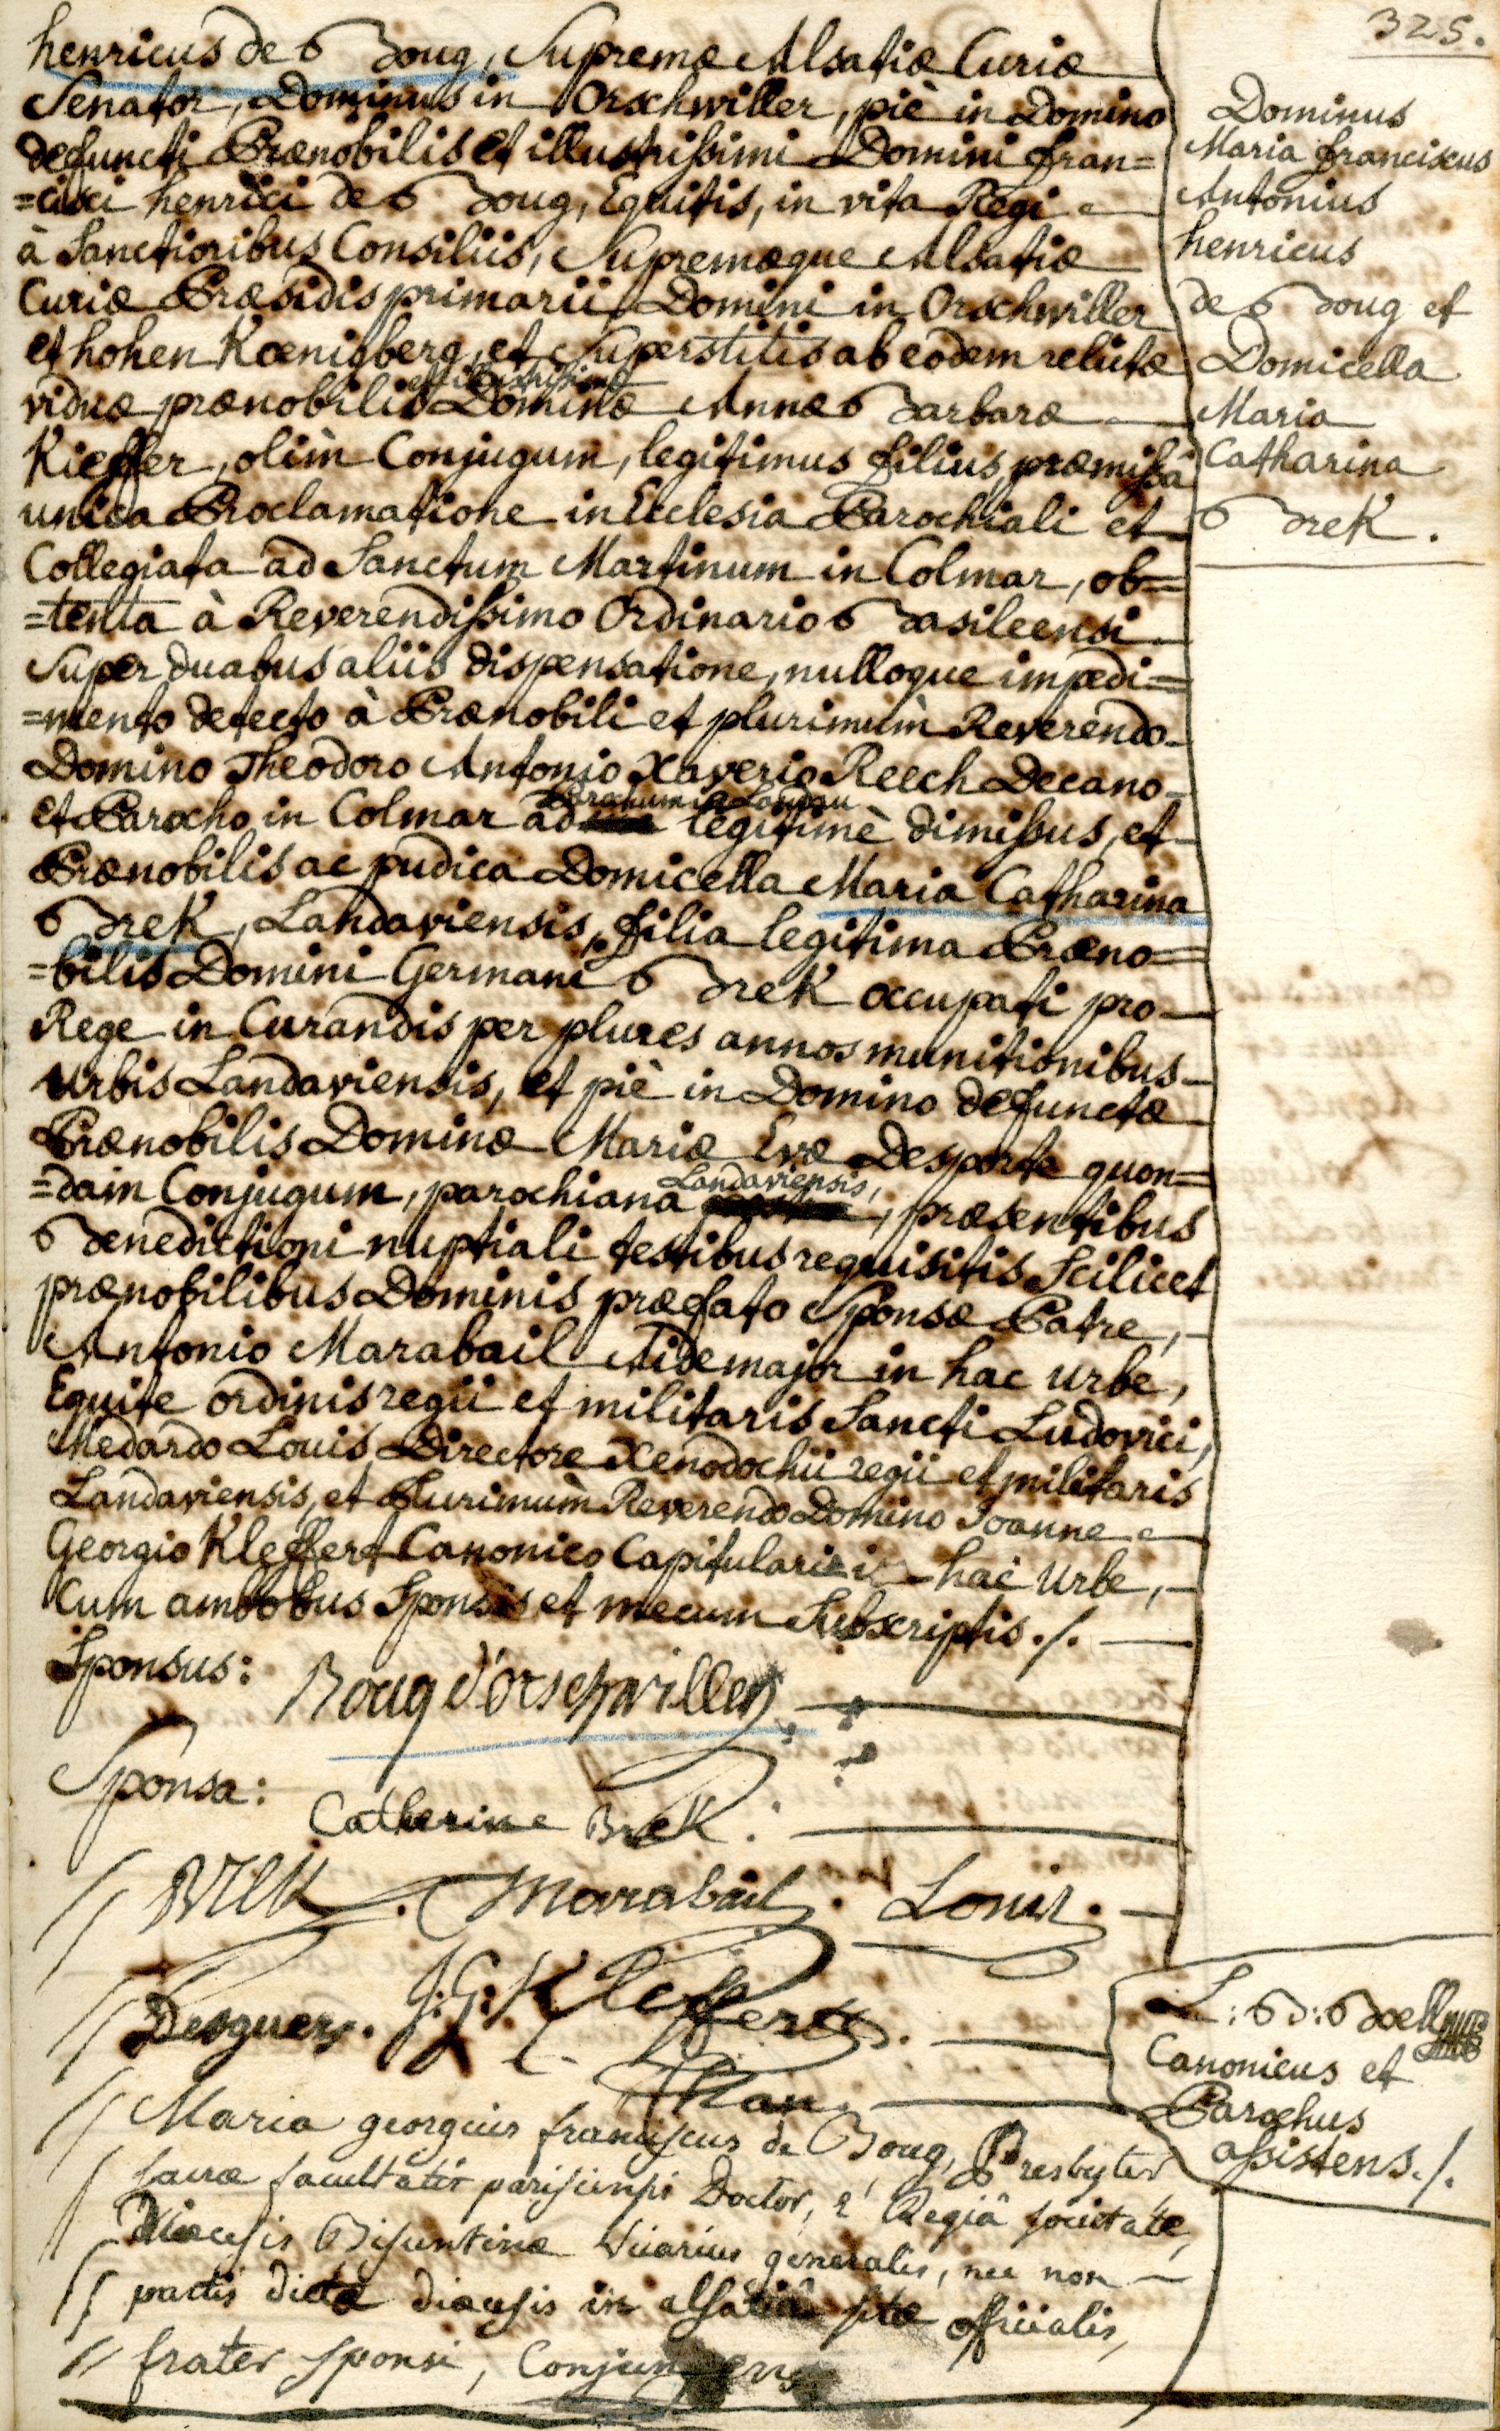 325.
henricus de Boug, Supremæ Alsatiæ Curiæ
Senator, Dominus in Orschwiller, piè in Domino
defuncti Prænobilis et illustrissimi Domini Fran=
=cisci henrici de Boug, Equitis, in vita Regi
à Sanctioribus Consiliis, Supremæque Alsatiæ
Curiæ Præsidis primarii Domini in Orschwiller
et hohen Kœnigberg, et Superstitis ab eodem relictæ
viduæ prænobilis et illustrissimæ Dominæ Annæ Barbaræ
Kieffer, olim Conjugum, legitimus filius, præmissâ
unica Proclamatione in Ecclesia Parochiali et
Collegiata ad Sanctum Martinum in Colmar, ob=
=tenta à Reverendissimo Ordinario Basileensi
Super duabus aliis dispensatione, nulloque impedi=
=mento detecto à Prænobili et plurimùm Reverendo
Domino Theodoro Antonio Xaverio Reech Decano
et Parocho in Colmar ad Parochum in Landau legitimè dimissus, et
Prænobilis ac pudica Domicella Maria Catharina
Brek, Landaviensis, filia legitima Præno=
=bilis Domini Germani Brek occupati pro
Rege in Curandis per plures annos munitionibus
Urbis Landaviensis, et piè in Domino defunctæ
Prænobilis Dominæ Mariæ Evæ Desporte quon=
=dam Conjugum, parochiana Landaviensis, præsentibus
Benedictioni nuptiali testibus requisitis Scilicet
prænobilibus Dominis præfato Sponsæ Patre,
Antonio Marabail Aidemajor in hac Urbe,
Equite ordinis regii et militaris Sancti Ludovici,
Medardo Louis Directore Xenodochii regii et militaris
Landaviensis, et Plurimùm Reverendo Domino Joanne
Georgio Kleffert Canonico Capitulari in hac Urbe,
Cum ambobus Sponsis et mecum Subscriptis ./.
Sponsus: Boug d'orschwiller
Sponsa: Catherine Brek.
Brek. Marabail. Louis.
J: G: Kleffert
Maria georgius franciscus de Boug, Presbyter
sacræ facultatis parisiensis Doctor, è Regiâ societate,
Diœcesis Bisuntinæ Vicarius generalis, nec non
partis dictæ diœcesis in alsatiâ sitæ officialis,
frater sponsi, Conjungens
Dominus
Maria franciscus
Antonius
henricus
de Boug et
Domicella
Maria
Catharina
Brek.
Canonicus et
Parochus
assistens ./.